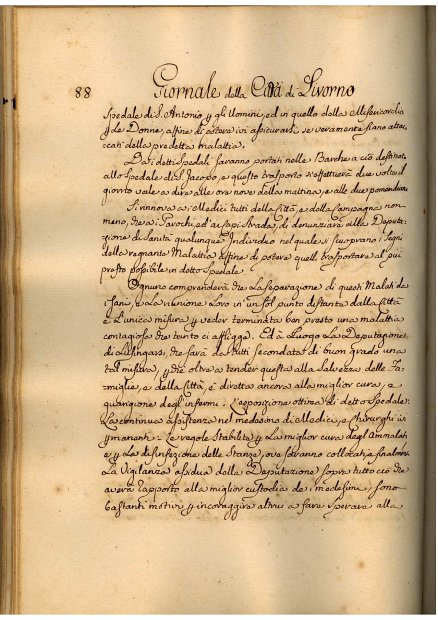 88 Giornale della Città di Livorno
Spedale di S. Antonio p gli Uomini, ed in quello della Misericordia
p le Donne, affine di potersi ivi assicurare se veramente siano attac-
cati della predetta malattia.
Da i detti Spedali saranno portati nelle Barche a ciò destinate
allo Spedale di S. Jacopo, e questo trasporto si effettuerà due volte il
giorno vale a dire alle ore nove della mattina, e alle due pomeridiane
Si rinnova a i Medici tutti della Città, e della Campagna non-
meno, che a i Parochi, ed ai Capi Strada, di denunziare alla Deputa-
zione di Sanità qualunque Individuo nel quale si scuoprano i Segni
della regnante Malattia affine di potere quelli trasportare al più
presto possibile in detto Spedale.
Ognuno comprenderà che La Separazione di questi Malati da
i Sani, e La riunione Loro in un sol punto distante dalla Città
è L'unica misura p veder terminata ben presto una malattia
contagiosa che tanto ci affligge. Ed à Luogo La Deputazione
di Lusingarsi, che sarà da tutti secondata di buon grado una
tal misura, p che oltre a tender questa alla Salvezza delle Fa-
miglie, e della Città, è diretta ancora alla miglior cura, e
guarigione degl'infermi. L'esposizione ottima di detto Spedale:
La continua assistenza nel medesimo di Medici, e Chirurghi ivi
permanenti: Le regole Stabilite p La miglior cura degl'Ammalati
e p La disinfezione delle Stanze, ove saranno collocati, e finalmente
La Vigilanza assidua della Deputazione sopra tutto ciò che
averà rapporto alla miglior custodia de i medesimi sono
bastanti motivi p incoraggire altrui a fare sperare alla